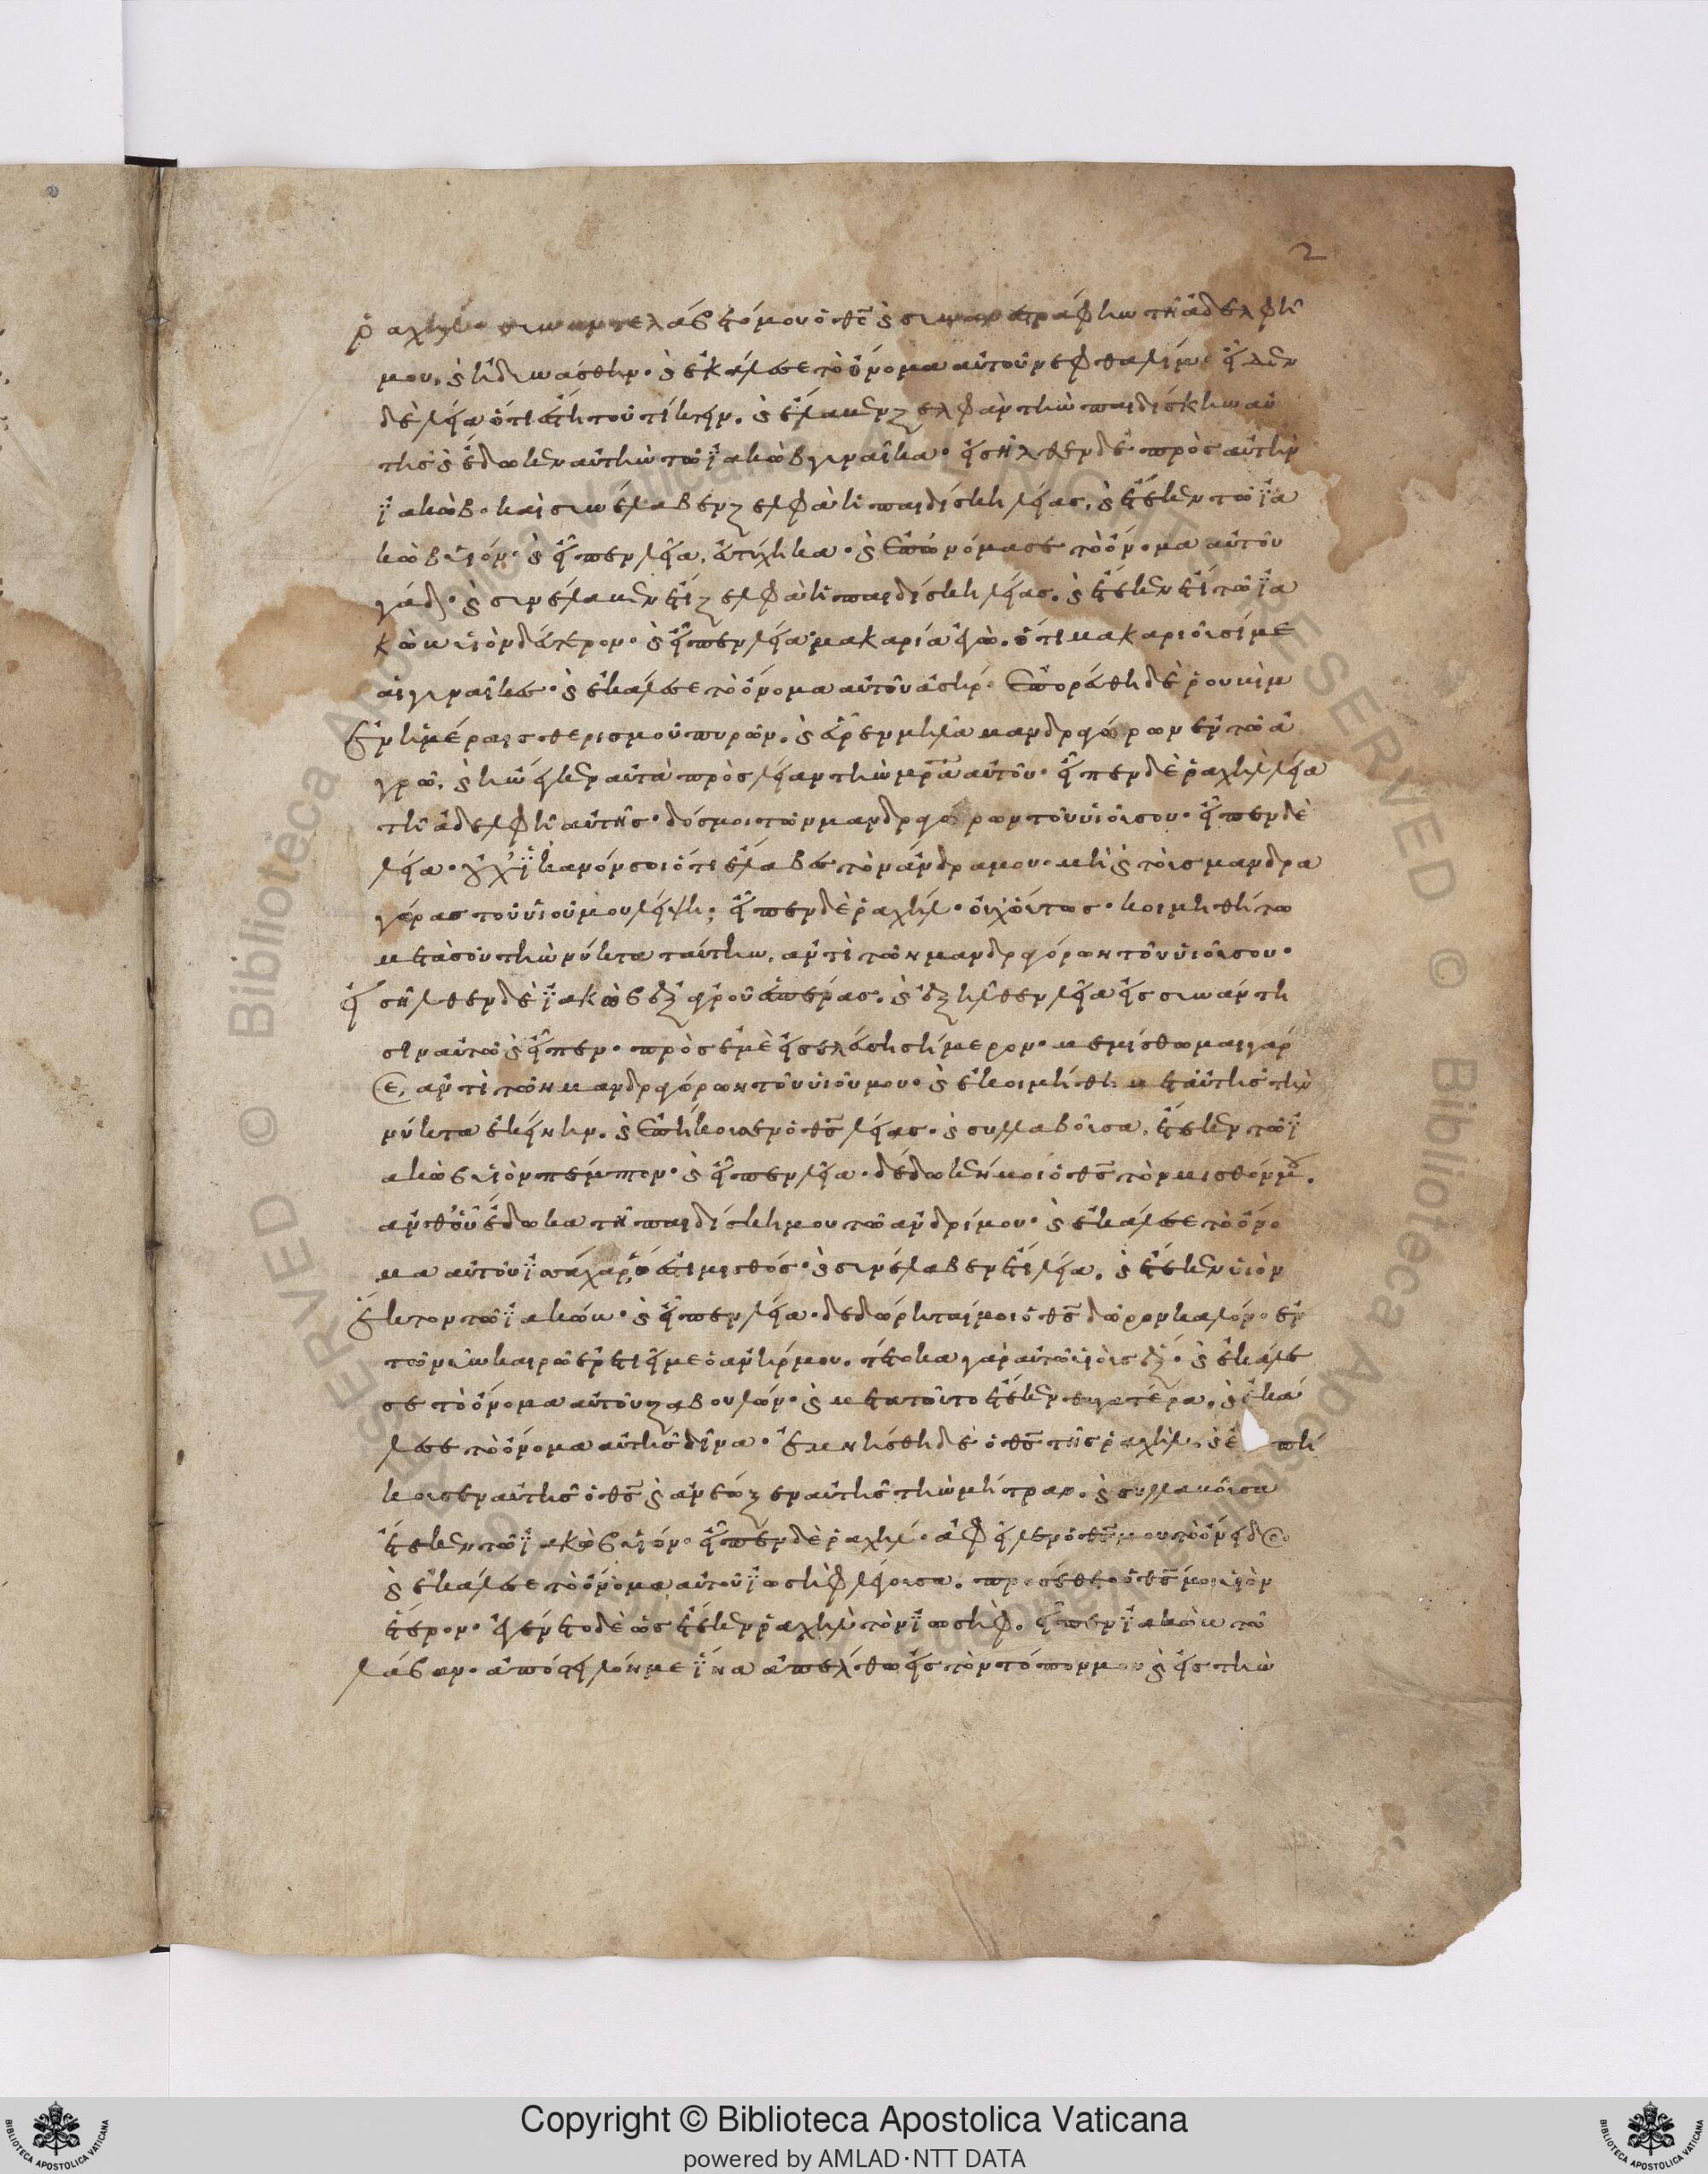 2
ῥαχήλ· συναντελάβετό μου ὁ θς̄ ϗ συνανεστράφην τῆ ἀδελφῆ
μου, ϗ ἠδυνάσθην· ϗ ἐκάλεσε τὸ ὄνομα αὐτοῦ νεφθαλίμ· εἶδεν
δὲ λεία ὅτι ἔστη τοῦ τίκτειν, ϗ ἔλαβεν ζελφὰν τὴν παιδίσκην αὐ
τῆς ϗ ἔδωκεν αὐτὴν τῶ ϊακὼβ γυναῖκα· εἰσῆλθεν δὲ πρὸς αὐτὴν
ϊακὼβ· καὶ συνέλαβεν ζελφὰ ἡ παιδίσκη λείας, ϗ ἔτεκεν τῶ ϊα
κὼβ υἱόν· ϗ εἶπεν λεία, ἐν τύχη κα· ϗ ἐπωνόμασε τὸ ὄνομα αὐτοῦ
γάδ· ϗ συνέλαβεν ἔτι ζελφὰ ἡ παιδίσκη λείας, ϗ ἔτεκεν ἔτι τῶ ϊα
κὼβ υἱὸν δεύτερον· ϗ εἶπεν λεία μακαρία ἐγὼ, ὅτι μακαριοῦσί με
αἱ γυναῖκες· ϗ ἐκάλεσε τὸ ὄνομα αὐτοῦ ἀσήρ· ἐπορεύθη δὲ ῥουβὶμ
ἐν ἡμέραις θερισμοῦ πυρῶν, ϗ εὗρεν μῆλα μανδραγόρων ἐν τῶ ἀ
γρῶ, ϗ ἤνεγκεν αὐτὰ πρὸς λείαν τὴν μρ̄α αὐτοῦ· εἶπεν δὲ ῥαχὴλ λεία
τῆ ἀδελφῆ αὐτῆς· δός μοι τῶν μανδραγόρων τοῦ υἱοῦ σου· εἶπεν δὲ
λεία· οὐχ ϊκανόν σοι ὅτι ἔλαβες τὸν ἄνδρα μου· μὴ ϗ τοὺς μανδρα
γόρας τοῦ υἱοῦ μου λήψη; εἶπεν δὲ ῥαχήλ· οὐχ οὕτως· κοιμηθήτω
μετὰ σοῦ τὴν νύκτα ταύτην, ἀντὶ τῶν μανδραγόρων τοῦ υἱοῦ σου·
εἰσῆλθεν δὲ ϊακὼβ ἐξ ἀγροῦ ἑσπέρας, ϗ ἐξῆλθεν λεία εἰς συνάντη
σιν αὐτῶ ϗ εἶπεν· πρὸς ἐμὲ εἰσελεύση σήμερον· μεμίσθωμαι γάρ
σε, ἀντὶ τῶν μανδραγόρων τοῦ υἱοῦ μου· ϗ ἐκοιμήθη μετ' αὐτῆς τὴν
νύκτα ἐκείνην, ϗ ἐπήκουσεν ὁ θς̄ λείας· ϗ συλλαβοῦσα, ἔτεκεν τῶ ϊ
ακὼβ υἱὸν πέμπτον· ϗ εἶπεν λεία· δέδωκέν μοι ὁ θς̄ τὸν μισθόν μου,
ἀνθ' οὗ ἔδωκα τὴν παιδίσκην μου τῶ ἀνδρί μου· ϗ ἐκάλεσε τὸ ὄνο
μα αὐτοῦ ϊσάχαρ, ὅ ἐστι μισθός· ϗ συνέλαβεν ἔτι λεία, ϗ ἔτεκεν υἱὸν
ἕκτον τῶ ϊακώβ· ϗ εἶπεν λεία· δεδώρηταί μοι ὁ θς̄ δῶρον καλόν· ἐν
τῶ νῦν καιρῶ αἱρετιεῖ με ὁ ἀνήρ μου, τέτοκα γὰρ αὐτῶ υἱοὺς ἕξ· ϗ ἐκάλε
σε τὸ ὄνομα αὐτοῦ ζαβουλών· ϗ μετὰ τοῦτο ἔτεκεν θυγατέρα, ϗ ἐκά
λεσε τὸ ὄνομα αὐτῆς δῖνα· ἐμνήσθη δὲ ὁ θς̄ τῆς ῥαχὴλ, ϗ ἐ πή
κουσεν αὐτῆς ὁ θς̄ ϗ ἀνέωξεν αὐτῆς τὴν μήτραν, ϗ συλλαβοῦσα
ἔτεκεν τῶ ϊακὼβ υἱόν· εἶπεν δὲ ῥαχήλ· ἀφεῖλεν ὁ θς̄ μου τὸ ὄνειδος·
ϗ ἐκάλεσε τὸ ὄνομα αὐτοῦ ϊωσὴφ λέγουσα, προσθέτω ὁ θς̄ μοι υἱὸν
ἕτερον· ἐγένετο δὲ ὡς ἔτεκεν ῥαχὴλ τὸν ϊωσὴφ, εἶπεν ϊακὼβ τῶ
λάβαν· ἀπόστειλόν με ϊνα ἀπέλθω εἰς τὸν τόπον μου ϗ εἰς τὴν